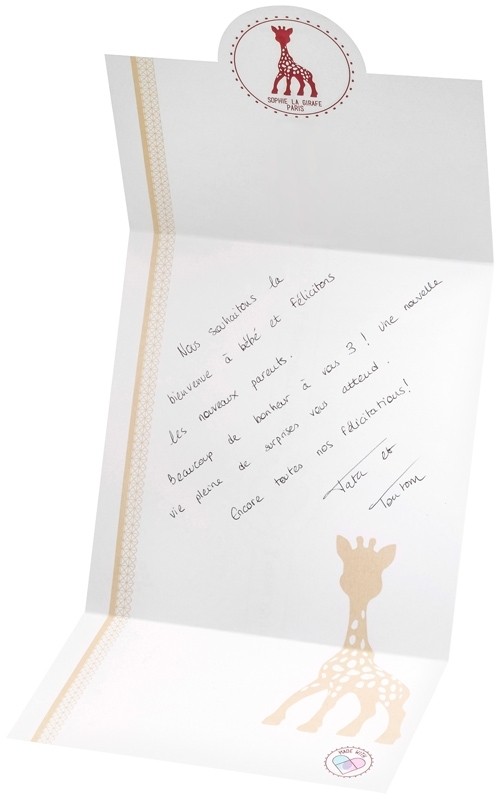 SOPHIE LA GIRAFE
PARIS
Nous souhaitons la
bienvenue à bébé et félicitons
les nouveaux parents.
Beaucoup de bonheur à vous 3 ! une nouvelle
vie pleine de surprises vous attend.
Encore toutes nos félicitations!
Tata et
Tontom
MADE WITH